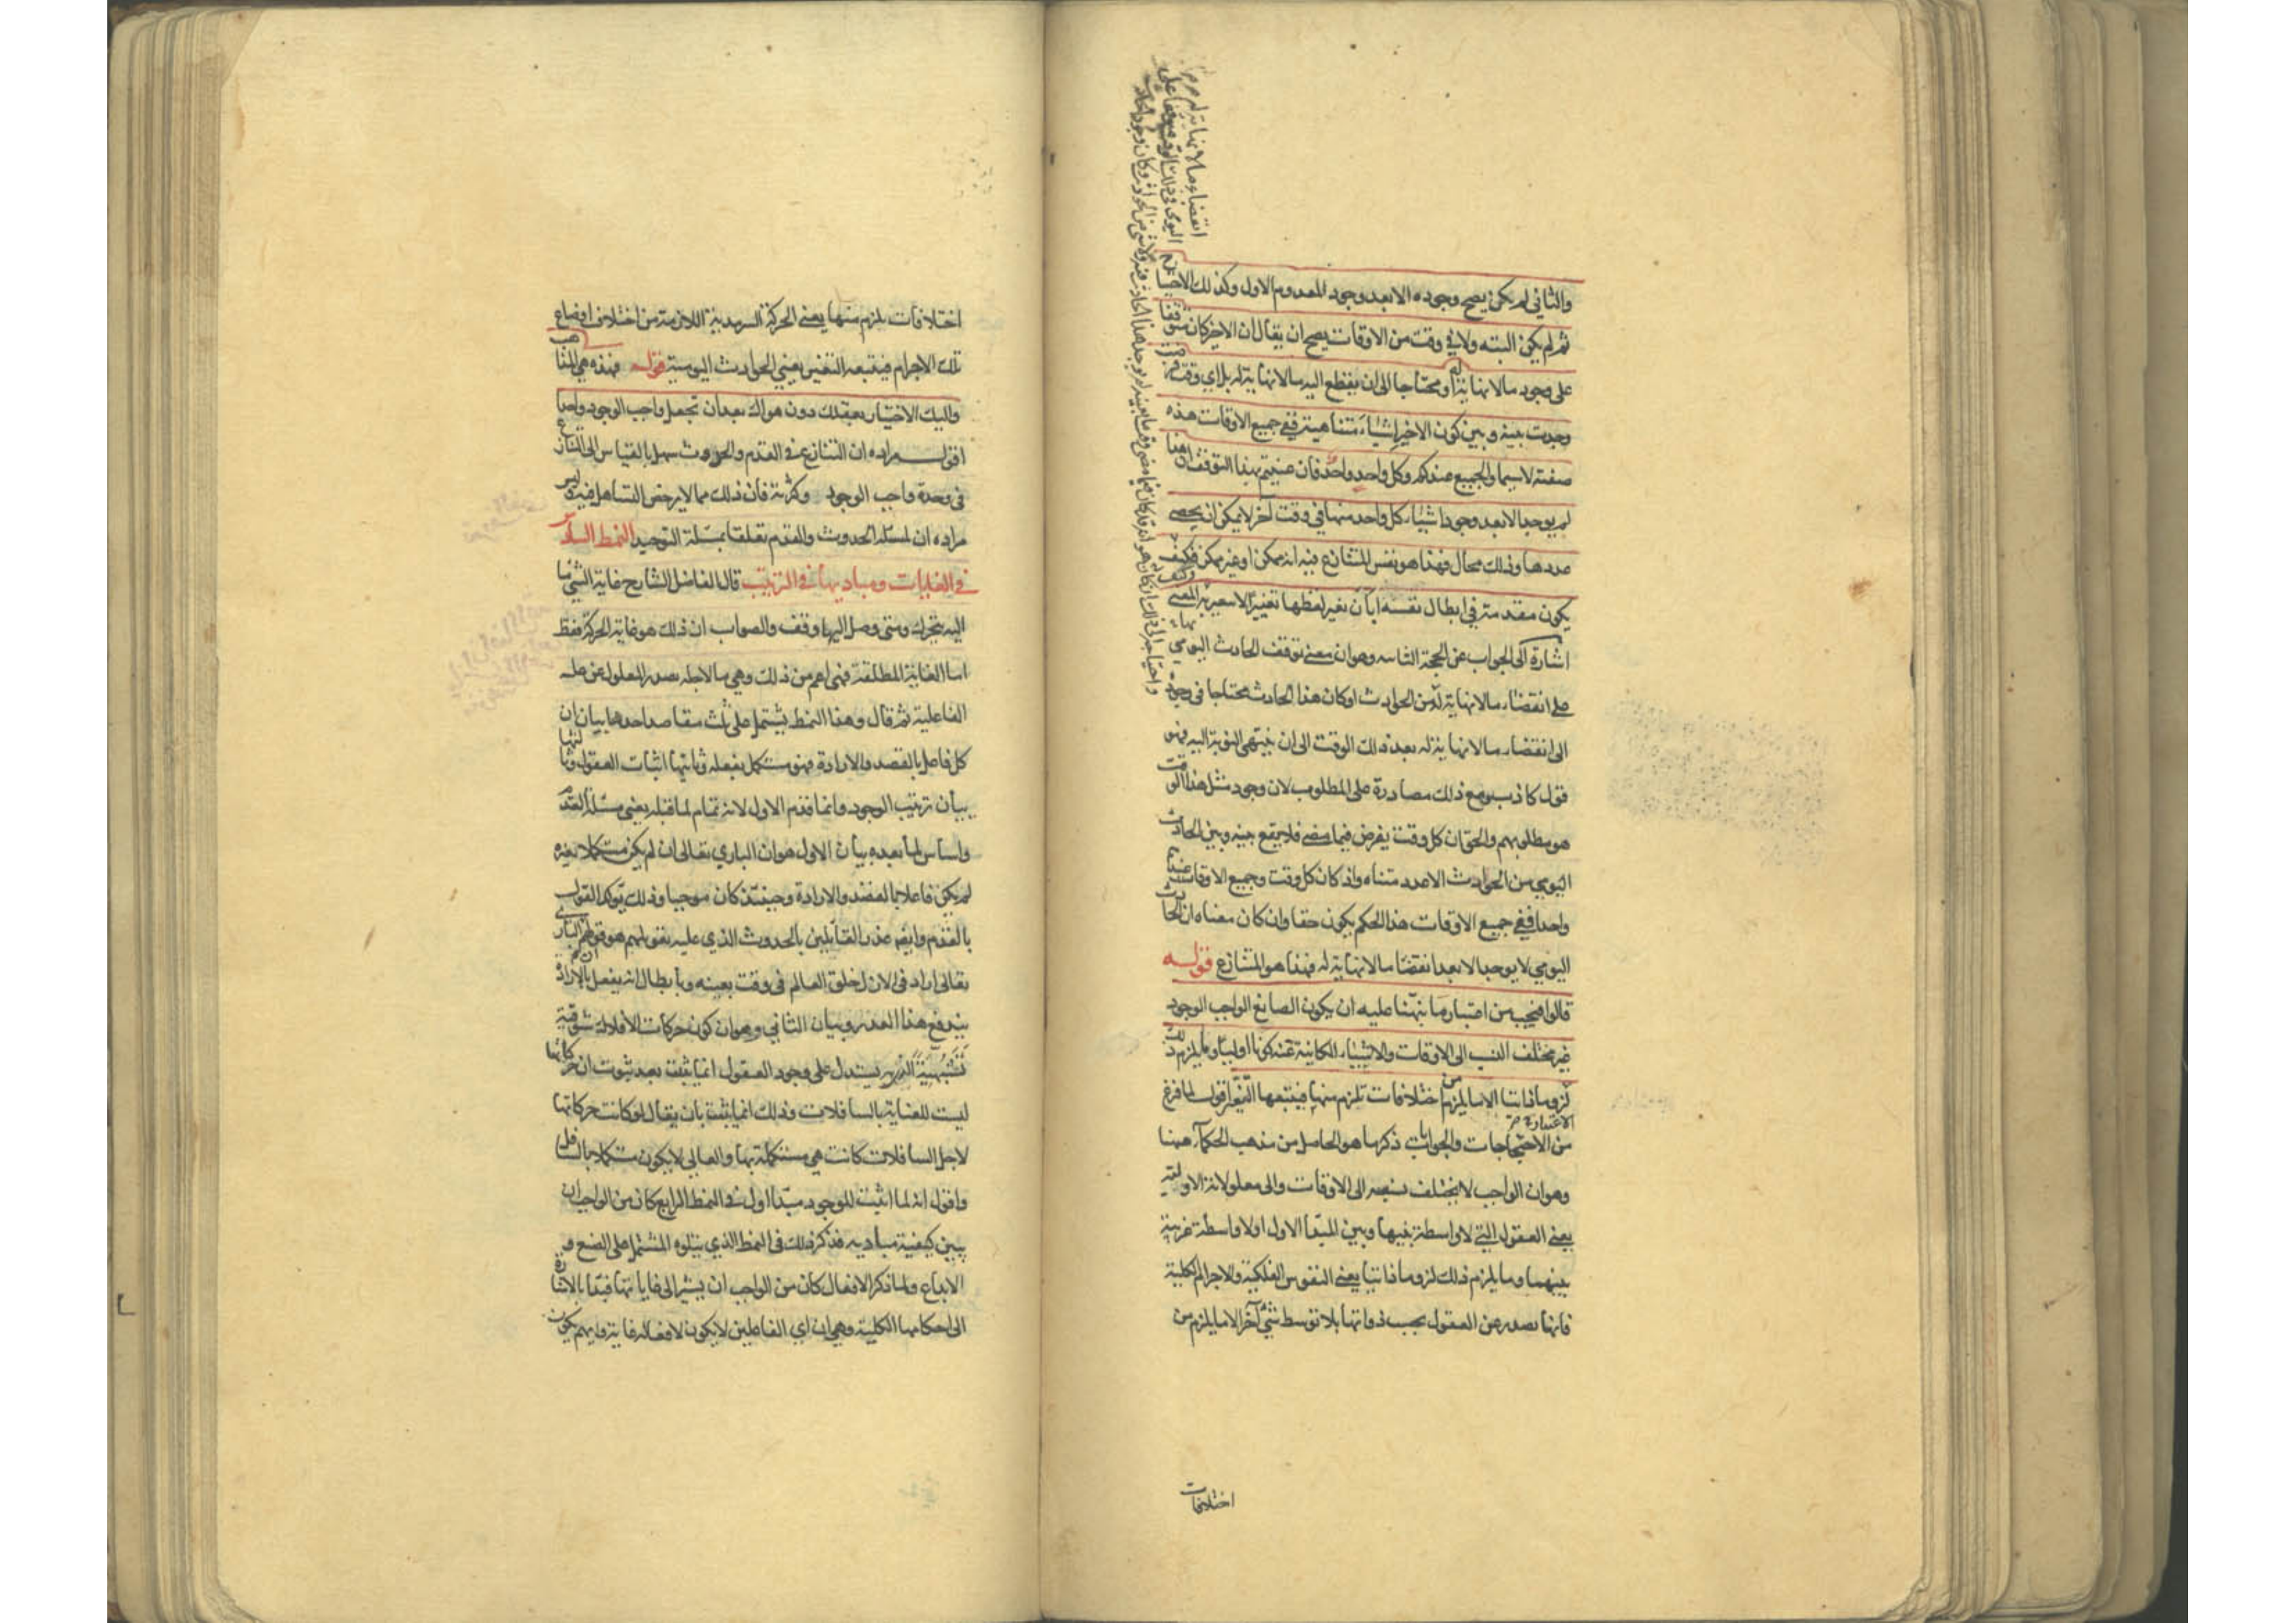 والثاني لم يكن يصح وجوده الا بعد وجود المعدوم الاول وكذلك الاحتياج
ثم لم يكن البته ولا في وقت من الاوقات يصح ان يقال ان الاخير كان متوقفا
على وجود ما لا نهاية له او محتاجا الى ان يقطع اليه ما لا نهاية له بل اي وقت فرضت
وجدت بينه وبين كون الاخير اشياء متناهية ففي جميع الاوقات هذه
صفته لا سيما والجميع عندكم وكل واحد واحد فان عنيتم بهذا التوقف ان هذا
لم يوجد الا بعد وجود اشياء كل واحد منها في وقت آخر لا يمكن ان يحصى
عددها وذلك محال فهذا هو نفس المتنازع فيه انه ممكن او غير ممكن فكيف
يكون مقدمة في ابطال نفسه ابان يغير لفظها تغييرا لا يتغير به المعنى
اشارة الى الجواب عن الحجة الثانيه وهو ان معنى توقف الحادث اليومي
على انقضاء ما لا نهاية له من الحوادث او كان هذا الحادث محتاجا في وجوده
الى انقضاء ما لا نهاية له بعد ذلك الوقت الى ان ينتهي النوبة اليه فهو
قول كاذب ومع ذلك مصادرة على المطلوب لان وجود مثل هذا الوقت
هو مطلوبهم والحق ان كل وقت يفرض فيما مضى فلا يقع بينه وبين الحادث
اليومي من الحوادث الا عدد متناه واذ كان كل وقت وجميع الاوقات عندهم
واحدا ففي جميع الاوقات هذا الحكم يكون حقا وان كان معناه ان الحادث
اليومي لا يوجد الا بعد انقضا ما لا نهاية له فهذا هو المتنازع قوله
قالوا فيجب من اعتبار ما نبهنا عليه ان يكون الصانع الواجب الوجود
غير مختلف النسب الى الاوقات والاشياء الكاينة عنه كونا اوليا وما يلزم ذلك
لزوما ذاتيا الا ما يلزم من اختلافات تلزم منها فيتبعها التغير اقول لما فرغ
من الاحتجاجات والجوابات ذكر ما هو الحاصل من مذهب الحكماء ههنا
وهو ان الواجب لا يختلف نسبه الى الاوقات والى معلولاته الاوليه
يعني العقول التي لا واسطة بينها وبين المبدأ الاول او لا واسطة غريبة
بينهما وما يلزم ذلك لزوما ذاتيا يعني النفوس الفلكية والاجرام الكلية
فانها تصدر عن العقول بحسب ذواتها بلا توسط شيء آخر الا ما يلزم من
اختلافات
اختلافات يلزم منها يعني الحركة السرمدية اللازمة من اختلاف اوضاع
تلك الاجرام فيتبعه التغير يعني الحوادث اليومية قوله فهذه هي المذاهب
واليك الاختيار بعقلك دون هواك بعد ان تجعل واجب الوجود واحدا
اقول مراده ان التنازع في القدم والحدوث سهل بالقياس الى التنازع
في وحدة واجب الوجود وكثرته فان ذلك مما لا يرخص التساهل فيه وليس
مراده ان لمسئلة الحدوث والقدم تعلقا بمسئلة التوحيد النمط السادس
في الغايات ومباديها في الترتيب قال الفاضل الشارح غاية الشيء ما
اليه يتحرك ومتى وصل اليها وقف والصواب ان ذلك هو غاية الحركة فقط
اما الغاية المطلقة فهي اعم من ذلك وهي ما لاجله يصدر المعلول عن علته
الفاعلية ثم قال وهذا النمط يشتمل على ثلث مقاصد احدها بيان ان
كل فاعل بالقصد والارادة فهو مستكمل بفعله وثانيها اثبات العقول وثالثها
بيان ترتيب الوجود وانما قدم الاول لانه تمام لما قبله يعني مسئلة القدم
واساس لما بعده بيان الاول هو ان الباري تعالى ان لم يكن مستكملا بغيره
لم يكن فاعلا بالقصد والارادة وحينئذ كان موجبا وذلك يؤكد القول
بالقدم وايضا عذر القائلين بالحدوث الذي عليه تعويلهم هو قولهم ان الباري
تعالى اراد في الازل خلق العالم في وقت بعينه وبابطال انه يفعل بالارادة
يندفع هذا العذر وبيان الثاني وهو ان كون حركات الافلاك شوقية
تشبهية الذي به يستدل على وجود العقول انما يثبت بعد ثبوت ان حركاتها
ليست للعناية بالسافلات وذلك انما يثبت بان يقال لو كانت حركاتها
لاجل السافلات كانت هي مستكملة بها والعالي لا يكون مستكملا بالسافل
واقول انه لما اثبت للوجود مبدأ اول في النمط الرابع كان من الواجب ان
يبين كيفية مباديه فذكر ذلك في النمط الذي يتلوه المشتمل على الصنع و
الابداع ولما ذكر الافعال كان من الواجب ان يشير الى غاياتها فبدأ بالاشارة
الى احكامها الكلية وهي ان اي الفاعلين لا يكون لافعاله غاية وايهم يكون